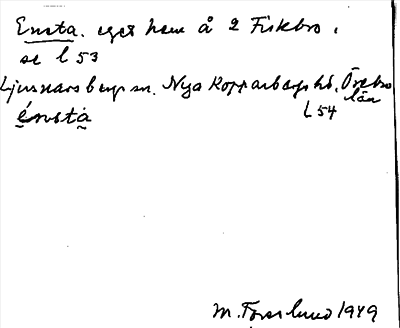 Ensta. eget hem å 2 Fiskebro.
se l 53
Ljusnarsbergs sn. Nya Kopparbergs hd. Örebro län
énstà
l 54
M. Forslund 1949